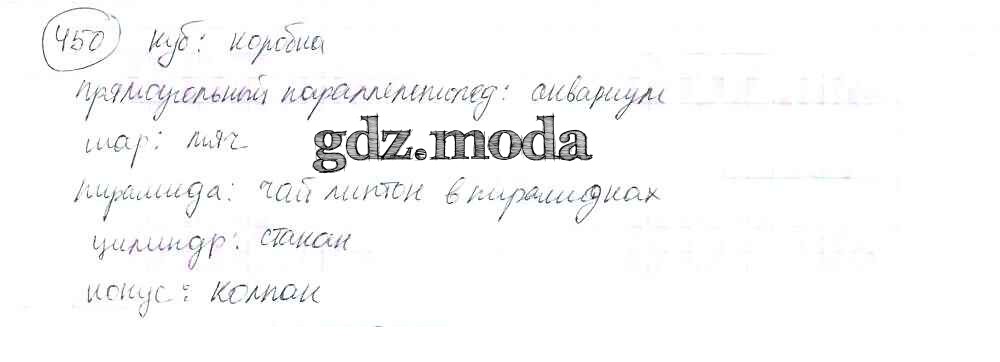 450 куб: коробка
прямоугольный параллелепипед: аквариум
шар: мяч
gdz.moda
пирамида: чай липтон в пирамидках
цилиндр: стакан
конус: колпак